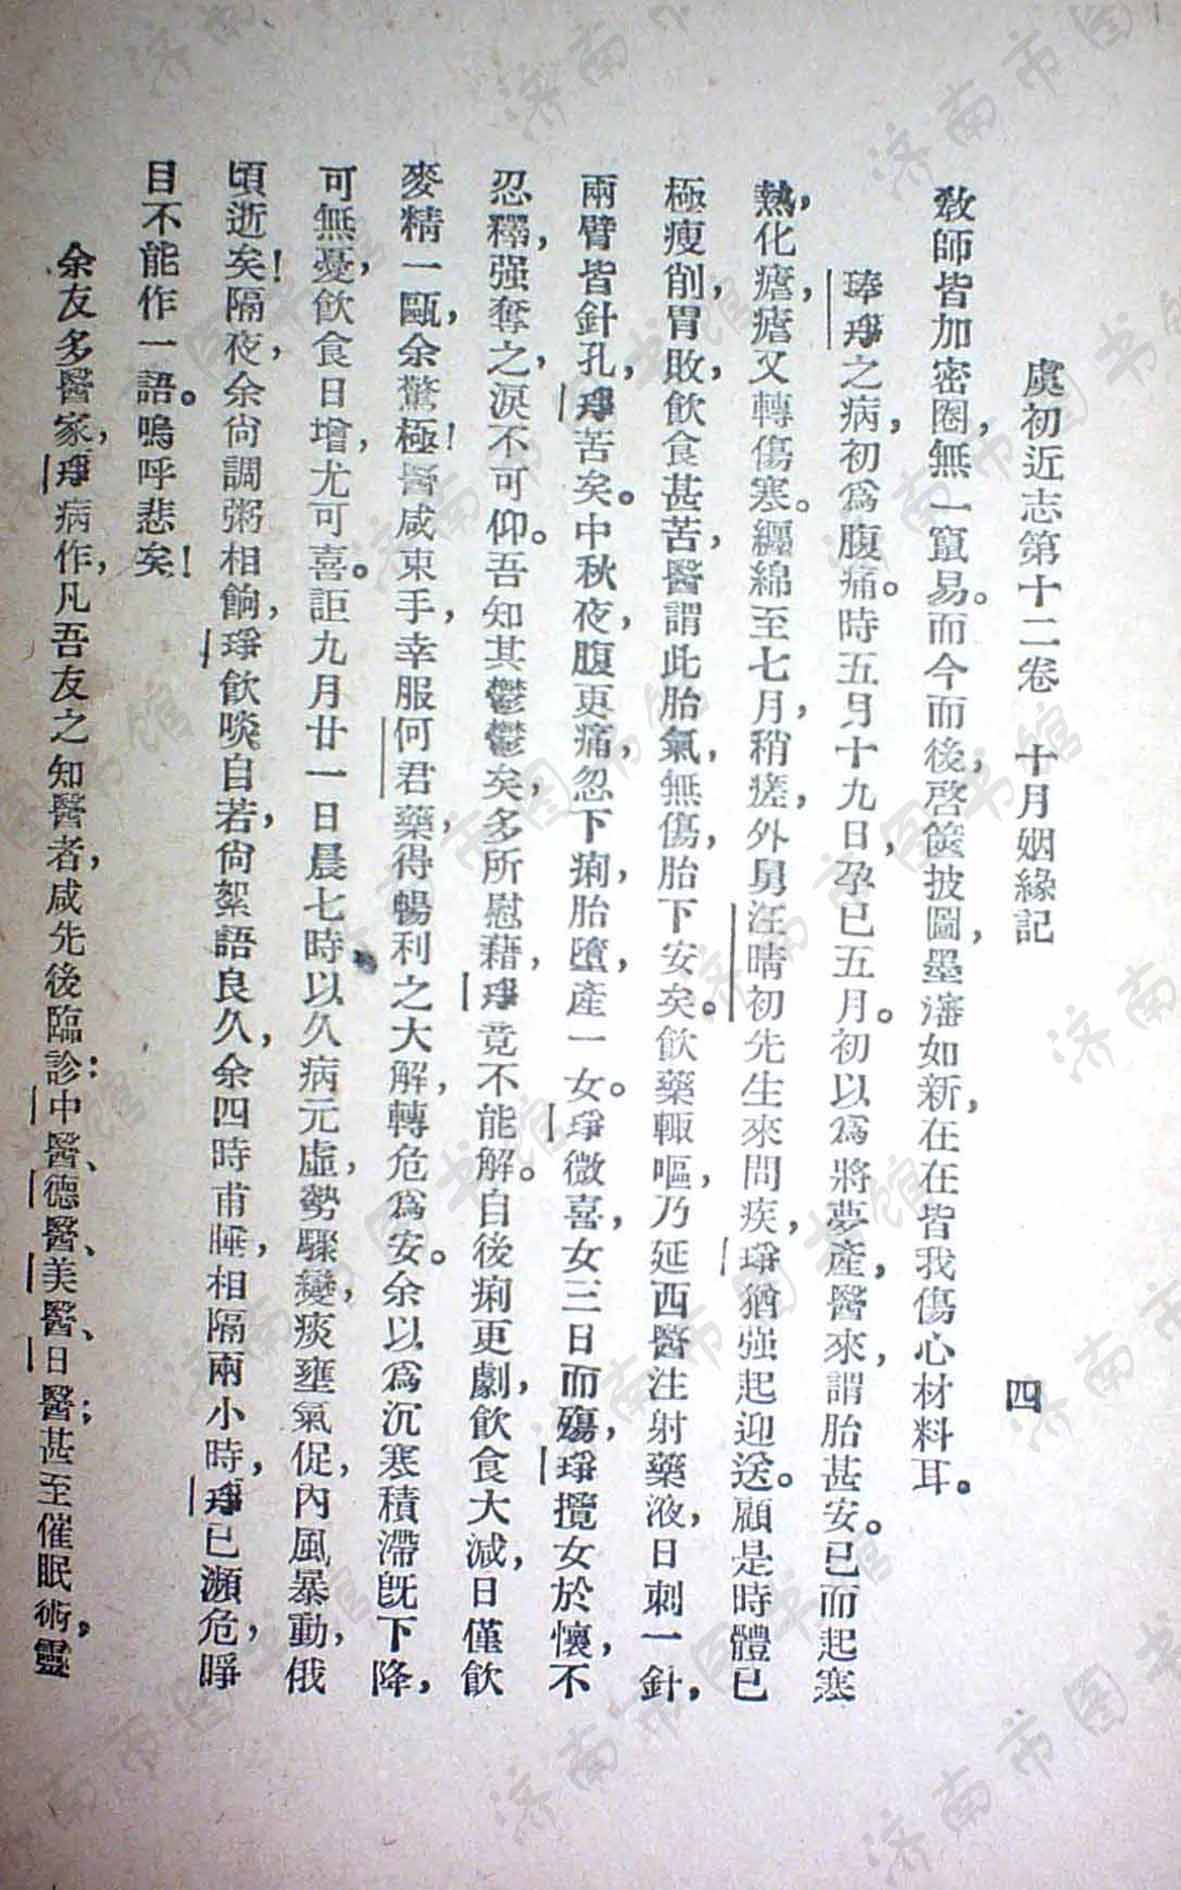 虞初近志第十二卷　十月姻緣記　四
敎師皆加密圈，無一竄易。而今而後，啓篋披圖，墨瀋如新，在在皆我傷心材料耳。
琫琤之病，初爲腹痛。時五月十九日，孕已五月。初以爲將夢產，醫來，謂胎甚安。已而起寒
熱，化瘧，瘧又轉傷寒。纏綿至七月，稍瘥，外舅汪晴初先生來問疾，琤猶强起迎送。顧是時體已
極瘦削，胃敗，飲食甚苦，醫謂此胎氣，無傷，胎下安矣。飲藥輒嘔，乃延西醫注射藥液，日刺一針，
兩臂皆針孔，琤苦矣。中秋夜，腹更痛，忽下痢，胎墮，產一女。琤微喜，女三日而殤，琤攬女於懷，不
忍釋，强奪之，淚不可仰。吾知其鬱鬱矣，多所慰藉，琤竟不能解。自後痢更劇，飲食大減，日僅飲
麥精一甌，余驚極！醫咸束手，幸服何君藥，得暢利之大解，轉危爲安。余以爲沉寒積滯旣下降，
可無憂，飲食日增，尤可喜。詎九月廿一日晨七時，以久病元虛，勢驟變，痰壅氣促，內風暴動，俄
頃逝矣！隔夜，余尙調粥相餉，琤飲啖自若，尙絮語良久，余四時甫睡，相隔兩小時，琤已瀕危，睜
目不能作一語。嗚呼悲矣！
余友多醫家，琤病作，凡吾友之知醫者，咸先後臨診：中醫、德醫、美醫、日醫；甚至催眠術，靈
济南市图书馆